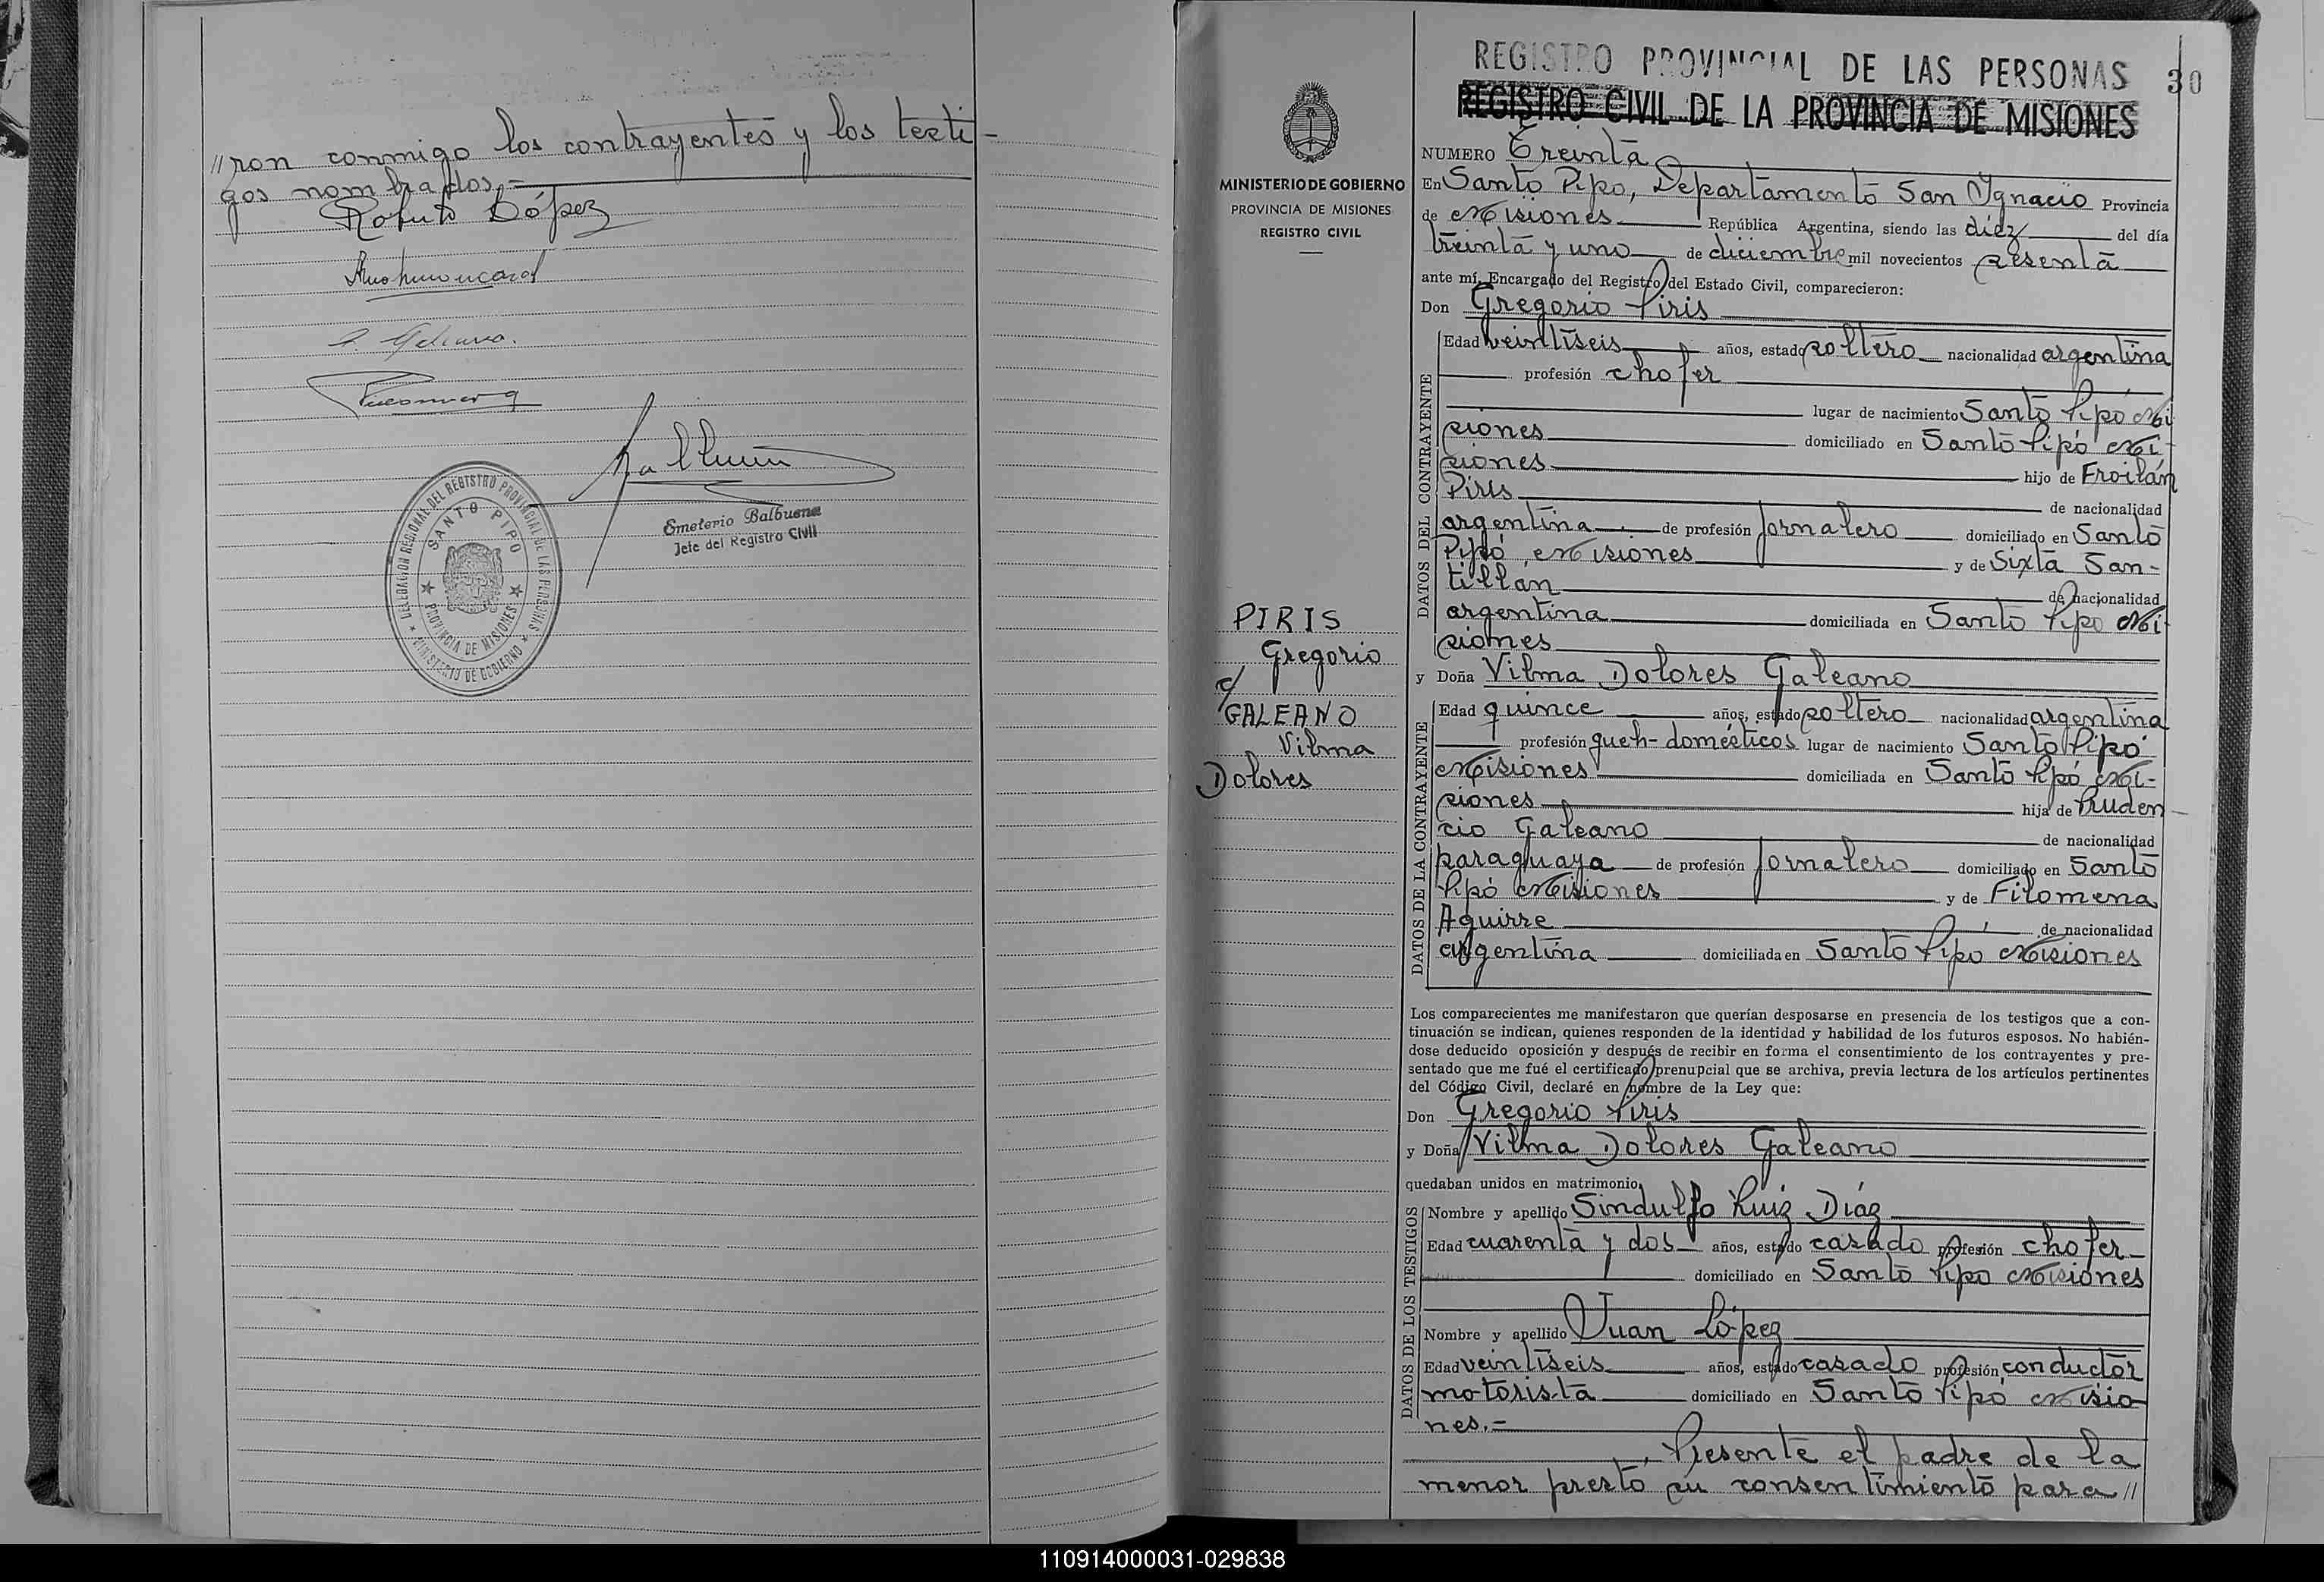 //ron conmigo los contrayentes y los testi-
gos nombrados.-
Roberto López
Emeterio Balbuena
Jefe del Registro Civil
DELEGACION REGIONAL DEL REGISTRO PROVINCIAL DE LAS PERSONAS
SANTO PIPO
PROVINCIA DE MISIONES
MINISTERIO DE GOBIERNO
MINISTERIO DE GOBIERNO
PROVINCIA DE MISIONES
REGISTRO CIVIL
PIRIS
Gregorio
c/
GALEANO
Vilma
Dolores
REGISTRO PROVINCIAL DE LAS PERSONAS 30
REGISTRO CIVIL DE LA PROVINCIA DE MISIONES
NUMERO Treinta
En Santo Pipo, Departamento San Ygnacio Provincia
de Misiones República Argentina, siendo las diez del día
treinta y uno de diciembre mil novecientos sesenta
ante mí, Encargado del Registro del Estado Civil, comparecieron:
Don Gregorio Piris
DATOS DEL CONTRAYENTE
Edad veintiseis años, estado soltero nacionalidad argentina
profesión chofer
lugar de nacimiento Santo Pipó Mi
siones domiciliado en Santo Pipó Mi-
siones hijo de Froilán
Piris de nacionalidad
argentina de profesión Jornalero domiciliado en Santo
Pipó Misiones y de Sixta San-
tillán de nacionalidad
argentina domiciliada en Santo Pipo Mi-
siones
y Doña Vilma Dolores Galeano
DATOS DE LA CONTRAYENTE
Edad quince años, estado soltero nacionalidad argentina
profesión queh-domésticos lugar de nacimiento Santo Pipó
Misiones domiciliada en Santo Pipó Mi-
siones hija de Pruden-
cio Galeano de nacionalidad
paraguaya de profesión Jornalero domiciliado en Santo
Pipó Misiones y de Filomena
Aguirre de nacionalidad
argentina domiciliada en Santo Pipó Misiones
Los comparecientes me manifestaron que querían desposarse en presencia de los testigos que a con-
tinuación se indican, quienes responden de la identidad y habilidad de los futuros esposos. No habién-
dose deducido oposición y después de recibir en forma el consentimiento de los contrayentes y pre-
sentado que me fué el certificado prenupcial que se archiva, previa lectura de los artículos pertinentes
del Código Civil, declaré en nombre de la Ley que:
Don Gregorio Piris
y Doña Vilma Dolores Galeano
quedaban unidos en matrimonio.
DATOS DE LOS TESTIGOS
Nombre y apellido Sindulfo Ruiz Díaz
Edad cuarenta y dos años, estado casado profesión chofer
domiciliado en Santo Pipo Misiones
Nombre y apellido Juan López
Edad veintiseis años, estado casado profesión conductor
motorista domiciliado en Santo Pipó Misio
nes.-
Presente el padre de la
menor presto su consentimiento para//
110914000031-029838